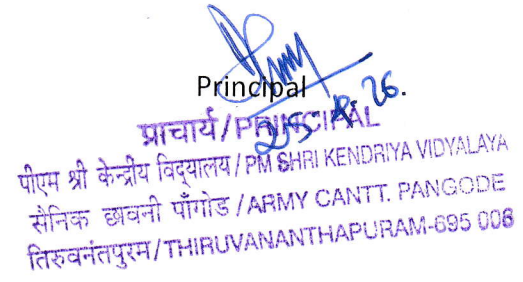 Principal
प्राचार्य/PRINCIPAL
पीएम श्री केन्द्रीय विद्यालय/PM SHRI KENDRIYA VIDYALAYA
सैनिक छावनी पाँगोड/ARMY CANTT. PANGODE
तिरुवनंतपुरम/THIRUVANANTHAPURAM-695 006